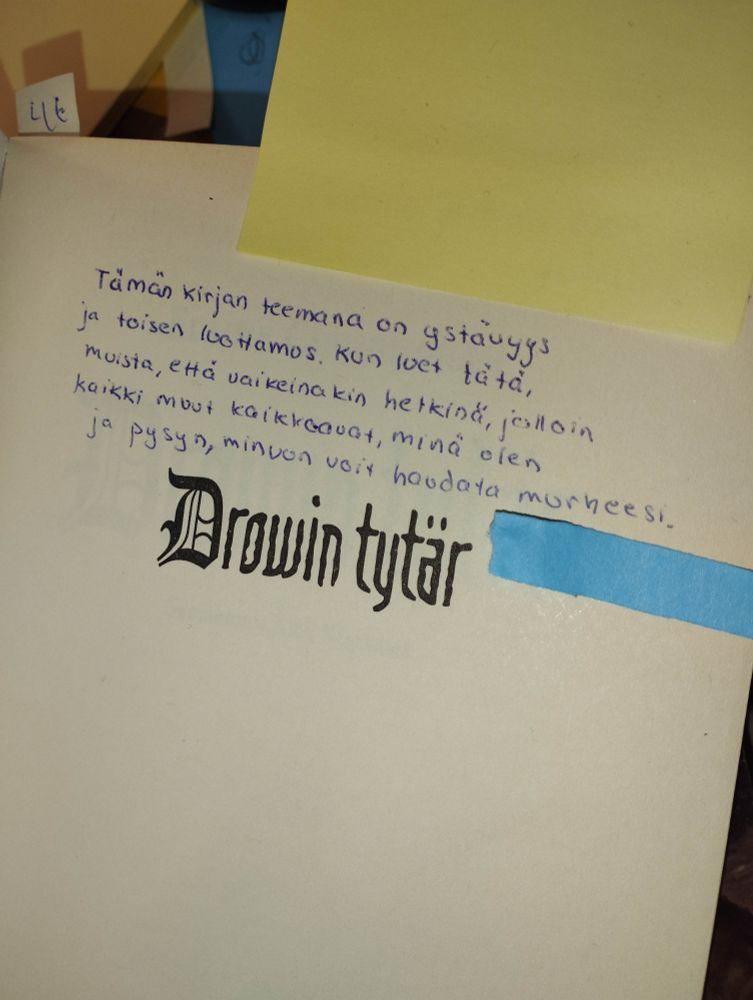 Tämän kirjan teemana on ystävyys
ja toisen luottamus. Kun luet tätä,
muista, että vaikeinakin hetkinä, jolloin
kaikki muut kaikkoavat, minä olen
ja pysyn, minuun voit haudata murheesi.
Drowin tytär